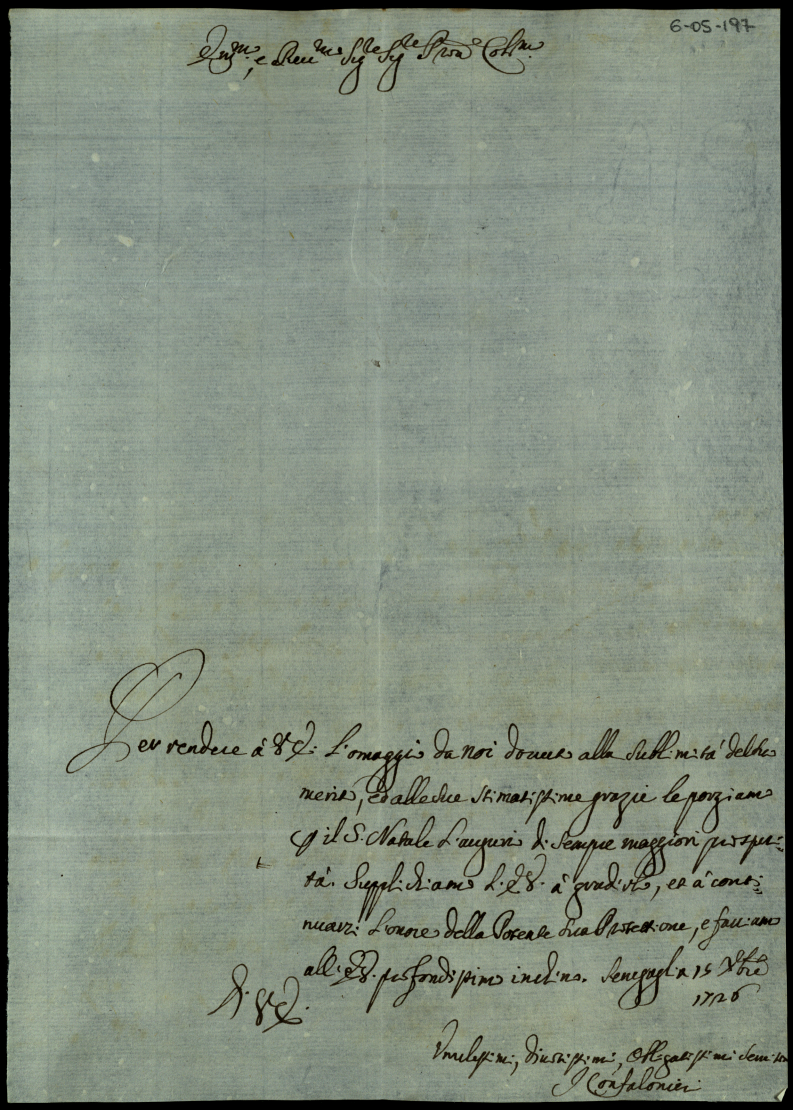 6-05-197
Em.mo, e Reu.mo Sig.re Sig.re Pron.e Col.mo
Per rendere à V. E. l'omaggio da noi douuto alla sublimità del suo
merito, ed alle sue stimatissime grazie le porgiamo
p il S. Natale l'augurio di sempre maggiori prosperi-
tà. Supplichiamo l'E. V. à gradirlo, et à conti-
nuarci l'onore della Potente sua Protettione, e facciamo
all'E. V. profondissimo inchino. Senegaglia 15 Xbre
1726
D. V. E.
Umilissimi, Diuotissimi, Obligatissimi Seruitori
Il Confalonieri